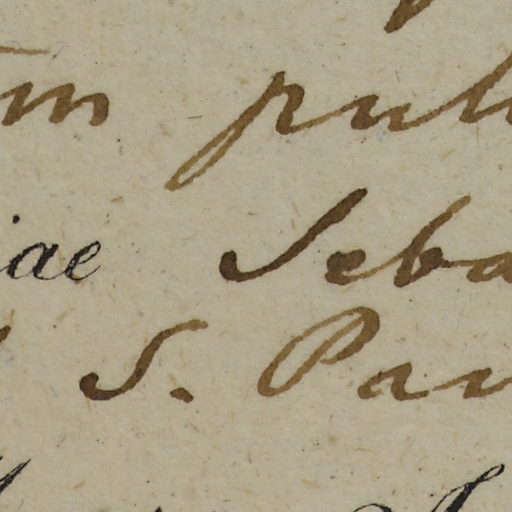 m pul
iae Seba
S. Pau